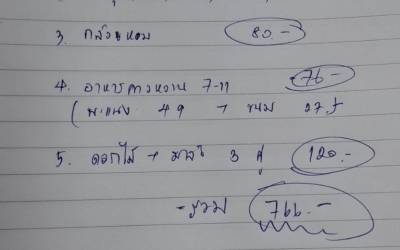 3. กล้วยหอม 80.-
4. อาหารคาวหวาน 7-11 76.-
( พะแนง 49 + ขนม 27.)
5. ดอกไม้ + มาลัย 3 คู่ 120.-
- รวม 766.-